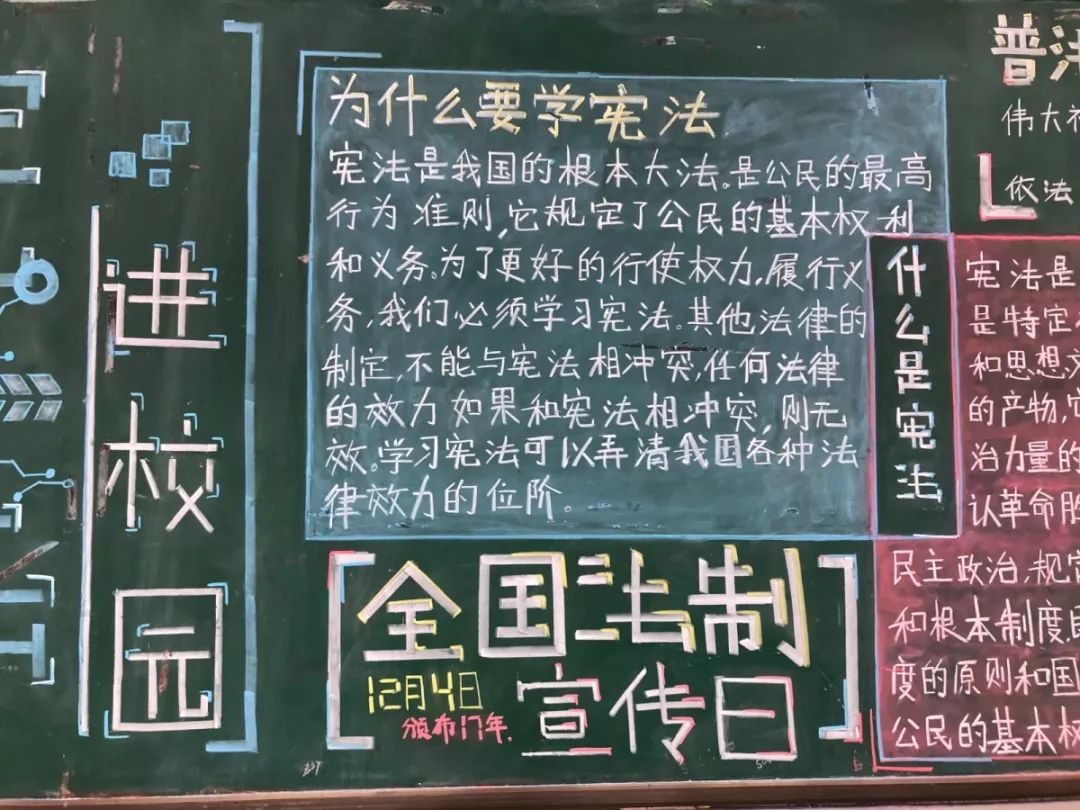 进校园
为什么要学宪法
宪法是我国的根本大法。是公民的最高
行为准则,它规定了公民的基本权利
和义务。为了更好的行使权力,履行义
务,我们必须学习宪法。其他法律的
制定,不能与宪法相冲突,任何法律
的效力如果和宪法相冲突,则无
效。学习宪法可以弄清我国各种法
律效力的位阶。
全国法制
12月4日
颁布17年.
宣传日
普法
伟大祖
依法
什么是宪法
宪法是
是特定
和思想文
的产物,它
治力量的
认革命胜
民主政治,规定
和根本制度,
度的原则和国
公民的基本权